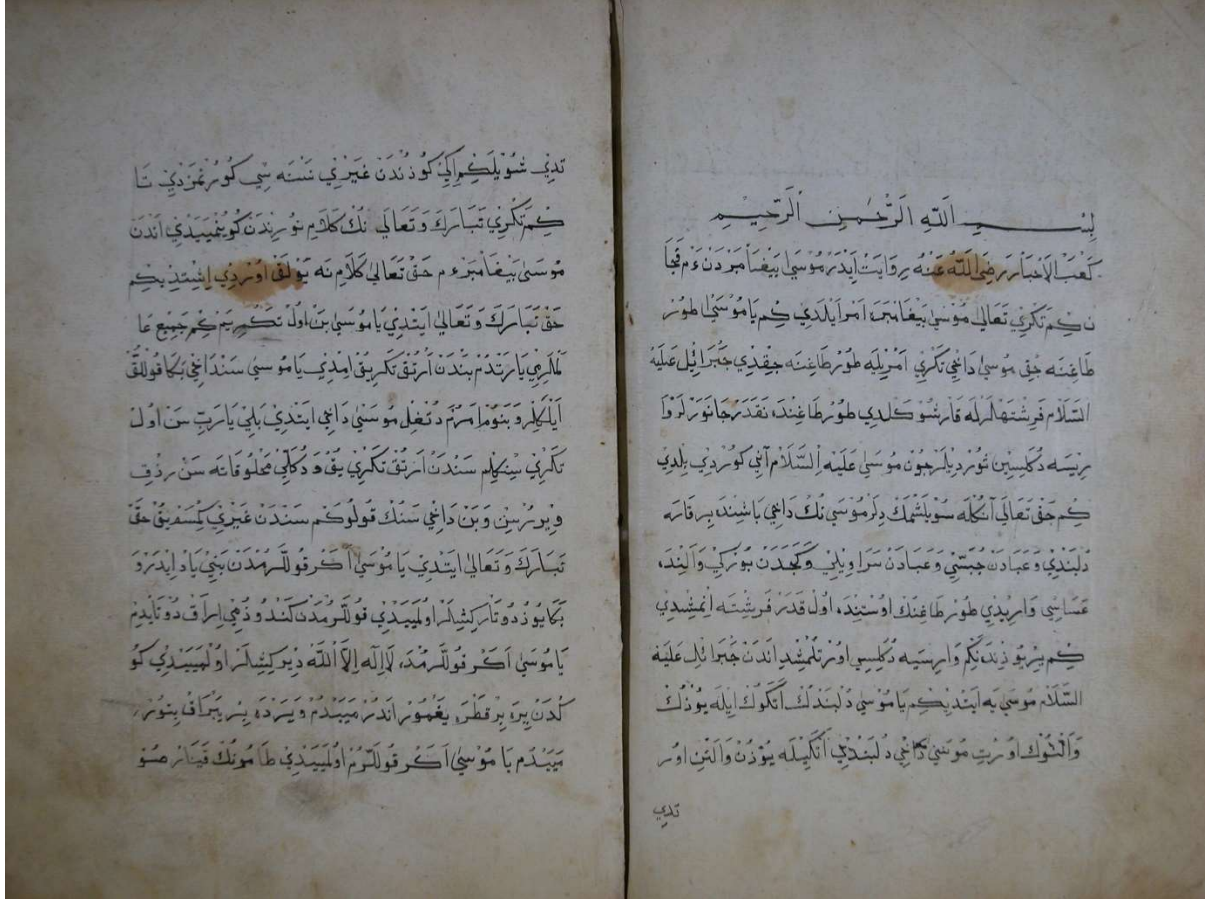 بِسْــمِ اللّٰهِ الرَّحْمٰنِ الرَّحِيمِ
كَعْبَ الْاَخْبَارْ رَضِيَ اللّٰهُ عَنْهُ رِوَايَتْ اَيْدَرْ مُوسٰى پَيْغَامْبَرْدَنْ ءم قَچَا
نْ كِمْ تَكْرِي تَعَالٰى مُوسٰى پَيْغَامْبَرَه اَمْرْ اَيْلَدِي كِمْ يَا مُوسٰى طُورْ
طَاغِنَه چِقْ مُوسٰى دَاخِي تَكْرِي اَمْرِيلَه طُورْ طَاغِنَه چِقْدِي جَبْرَائِلْ عَلَيْهِ
السَّلَامْ فَرِشْتَهلَرْلَه قَارْشُو كَلْدِي طُورْ طَاغِنْدَه نَقَدَرْ جَانَوَرْلَرْ وَا
رِيسَه دُكَلِسِينْ سُورْدِيلَرْ چُونْ مُوسٰى عَلَيْهِ السَّلَامْ آنِي كُورْدِي بِلْدِي
كِمْ حَقْ تَعَالٰى آنُكْلَه سُوْيلَشْمَكْ دِلَرْ مُوسٰى نُكْ دَاخِي بَاشِنْدَه بِرْ قَارَه
دُلْبَنْدِي وَعَبَادَنْ جُبَّسِي وَعَبَادَنْ سَرَاوِيلِي وَكَچَدَنْ بُورْكِي وَاَلِنْدَه
عَصَاسِي وَارِيدِي طُورْ طَاغِنُكْ اُوسْتِنْدَه اُولْ قَدَرْ فَرِشْتَه اِنْمِشِدِي
كِمْ يِرْ يُوزِنْدَه نَكِمْ وَارِسَيه دُكَلِسِي اُورْتُلْمِشِدِ اَنْدَنْ جَبْرَائِلْ عَلَيْهِ
السَّلَامْ مُوسٰى يَه اَيْتِدِيكِمْ يَا مُوسٰى دُلْبَنْدُكْ اَتَكُوكْ اِيلَه يُوزُكْ
وَاَلْنُوكْ اُورْتْ مُوسٰى دَاخِي دُلْبَنْدِي اَتَكِيلَه يُوزُنْ وَاَلْنِنْ اُورْ
تدي
تدِي شُويْلَكِمْ اِكِي كُوزُنْدَنْ غَيْرِي نَسْنَه سِي كُورُنْمَزْدِي تَا
كِمْ تَكْرِي تَبَارَكَ وَتَعَالٰى نُكْ كَلَامِ نُورِنْدَنْ كُويُنْمَيَيْدِي اَنْدَنْ
مُوسٰى پَيْغَامْبَرْ ءم حَقْ تَعَالٰى كَلَامِ نَه يُولَقْ اُورْدِي اِشِتْدِيكِمْ
حَقْ تَبَارَكَ وَتَعَالٰى اَيْتْدِي يَا مُوسٰى بَنْ اُولْ تَكْرِيَمْ كِمْ جَمِيعْ عَا
لَمْلَرِي يَارَتْدُمْ بَنْدَنْ اَرْتُقْ تَكْرِي يُقْ اِمْدِي يَا مُوسٰى سَنْ دَاخِي بَكَا قُوللُقْ
اَيْلَكِلْ وَبَنُومْ اَمْرُمْ دُتْغِلْ مُوسٰى دَاخِي اَيْتْدِي بَلِي يَا رَبّ سَنْ اُولْ
تَكْرِي سِنْكِمْ سَنْدَنْ اَرْتُقْ تَكْرِي يُقْ وَدُكَلِي مَخْلُوقَاتَه سَنْ رِزْقْ
وِيرُرْسِنْ وَبَنْ دَاخِي سَنُكْ قُولُوكَمْ سَنْدَنْ غَيْرِي كِمْسَه يُقْ حَقْ
تَبَارَكَ وَتَعَالٰى اَيْتْدِي يَا مُوسٰى اَكَرْ قُوللَرُمْدَنْ بَنِي يَادْ اِيدَرْ وَ
بَكَا يُوزْ دُوتَارْ كِشِلَرْ اُولْمَيَيْدِي قُوللَرُمْدَنْ كَنْدُوزُمِي اِرَاقْ دُوتَايْدُمْ
يَا مُوسٰى اَكَرْ قُوللَرُمْدَه لَا اِلٰهَ اِلَّا اللّٰهْ دِيرْ كِشِلَرْ اُولْمَيَيْدِي كُو
كْدَنْ يِرَه بِرْ قَطْرَه يَغْمُورْ اَنْدُرْمَيَيْدُمْ وَيِرْدَه بِرْ يَپْرَاقْ بِتُورْ
مَيَيْدُمْ يَا مُوسٰى اَكَرْ قُوللَرُومْ اُولْمَيَيْدِي طَامُونُكْ قَيْنَارْ صُو